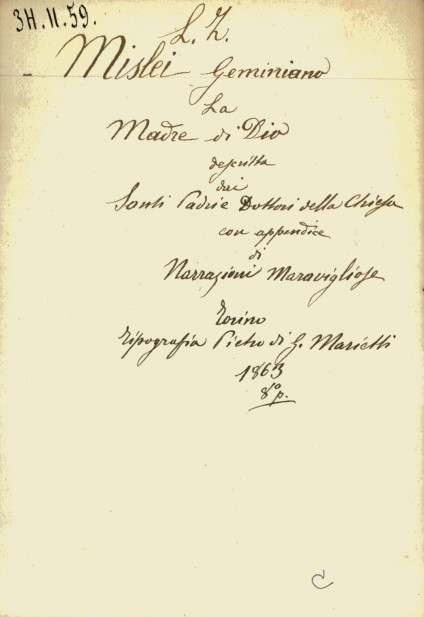 3H.II.59.
L. Z.
Mislei Geminiano
La
Madre di Dio
descritta
dai
Santi Padri e Dottori della Chiesa
con appendice
di
Narrazioni Maravigliose
Torino
Tipografia Pietro di G. Marietti
1863
8º p.
C